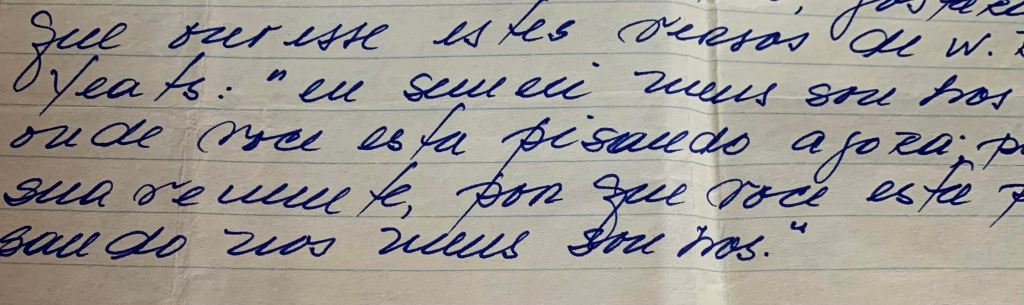 gostaria
que ouvisse estes versos de W.
Yeats: "eu semeei meus sonhos
onde voce esta pisando agora; p
suavemente, por que voce esta p
sando nos meus sonhos."